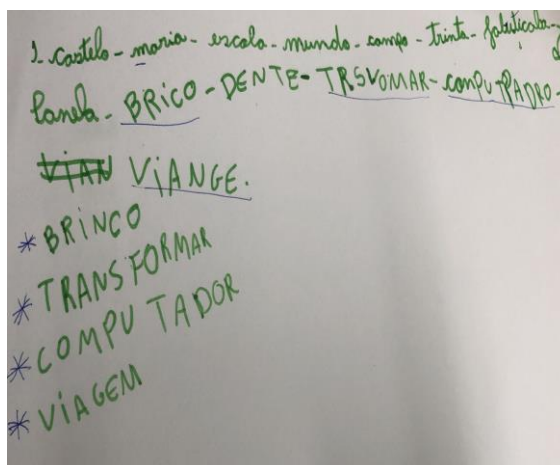 1. castelo - maria - escola - mundo - campo - trinta - jabuticaba -
Panela - BRiCO - DENTE - TRSVOMAR - comPUTPADRO -
ViAN ViANGE.
* BRiNCO
* TRANSFORMAR
* COMPUTADOR
* ViAGEM